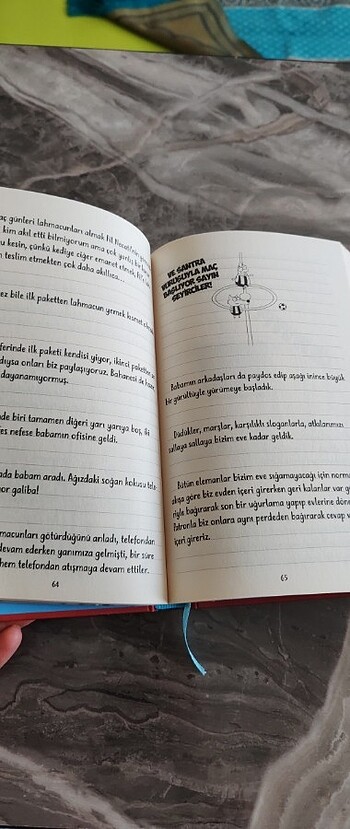 aç günleri lahmacunları almak Fil Necati'nin
kim akıl etti bilmiyorum ama çok yanlış bir
u kesin, çünkü kediye ciğer emanet etmek, Fil'e
n teslim etmekten çok daha akıllıca...
ez bile ilk paketten lahmacun yemek kısmet
ferinde ilk paketi kendisi yiyor, ikinci paketten
dıysa onları biz paylaşıyoruz. Bahanesi de
dayanamıyormuş.
de biri tamamen diğeri yarı yarıya boş, iki
es nefese babamın ofisine geldi.
ada babam aradı. Ağızdaki soğan kokusu tele
yor galiba!
macunları götürdüğünü anladı, telefondan
devam ederken yanımıza gelmişti, bir süre
hem telefondan atışmaya devam ettiler.
64
VE SANTRA
VURUŞUYLA MAÇ
BAŞLIYOR SAYIN
SEYİRCİLER!
Babamın arkadaşları da paydos edip aşağı inince büyük
bir gürültüyle yürümeye başladık.
Düdükler, marşlar, karşılıklı sloganlarla, atkılarımızı
sallaya sallaya bizim eve kadar geldik.
Bütün elemanlar bizim eve sığamayacağı için norma
akışa göre biz evden içeri girerken geri kalanlar var g
riyle bağırarak son bir uğurlama yapıp evlerine döne
Patronla biz onlara aynı perdeden bağırarak cevap v
içeri gireriz.
65